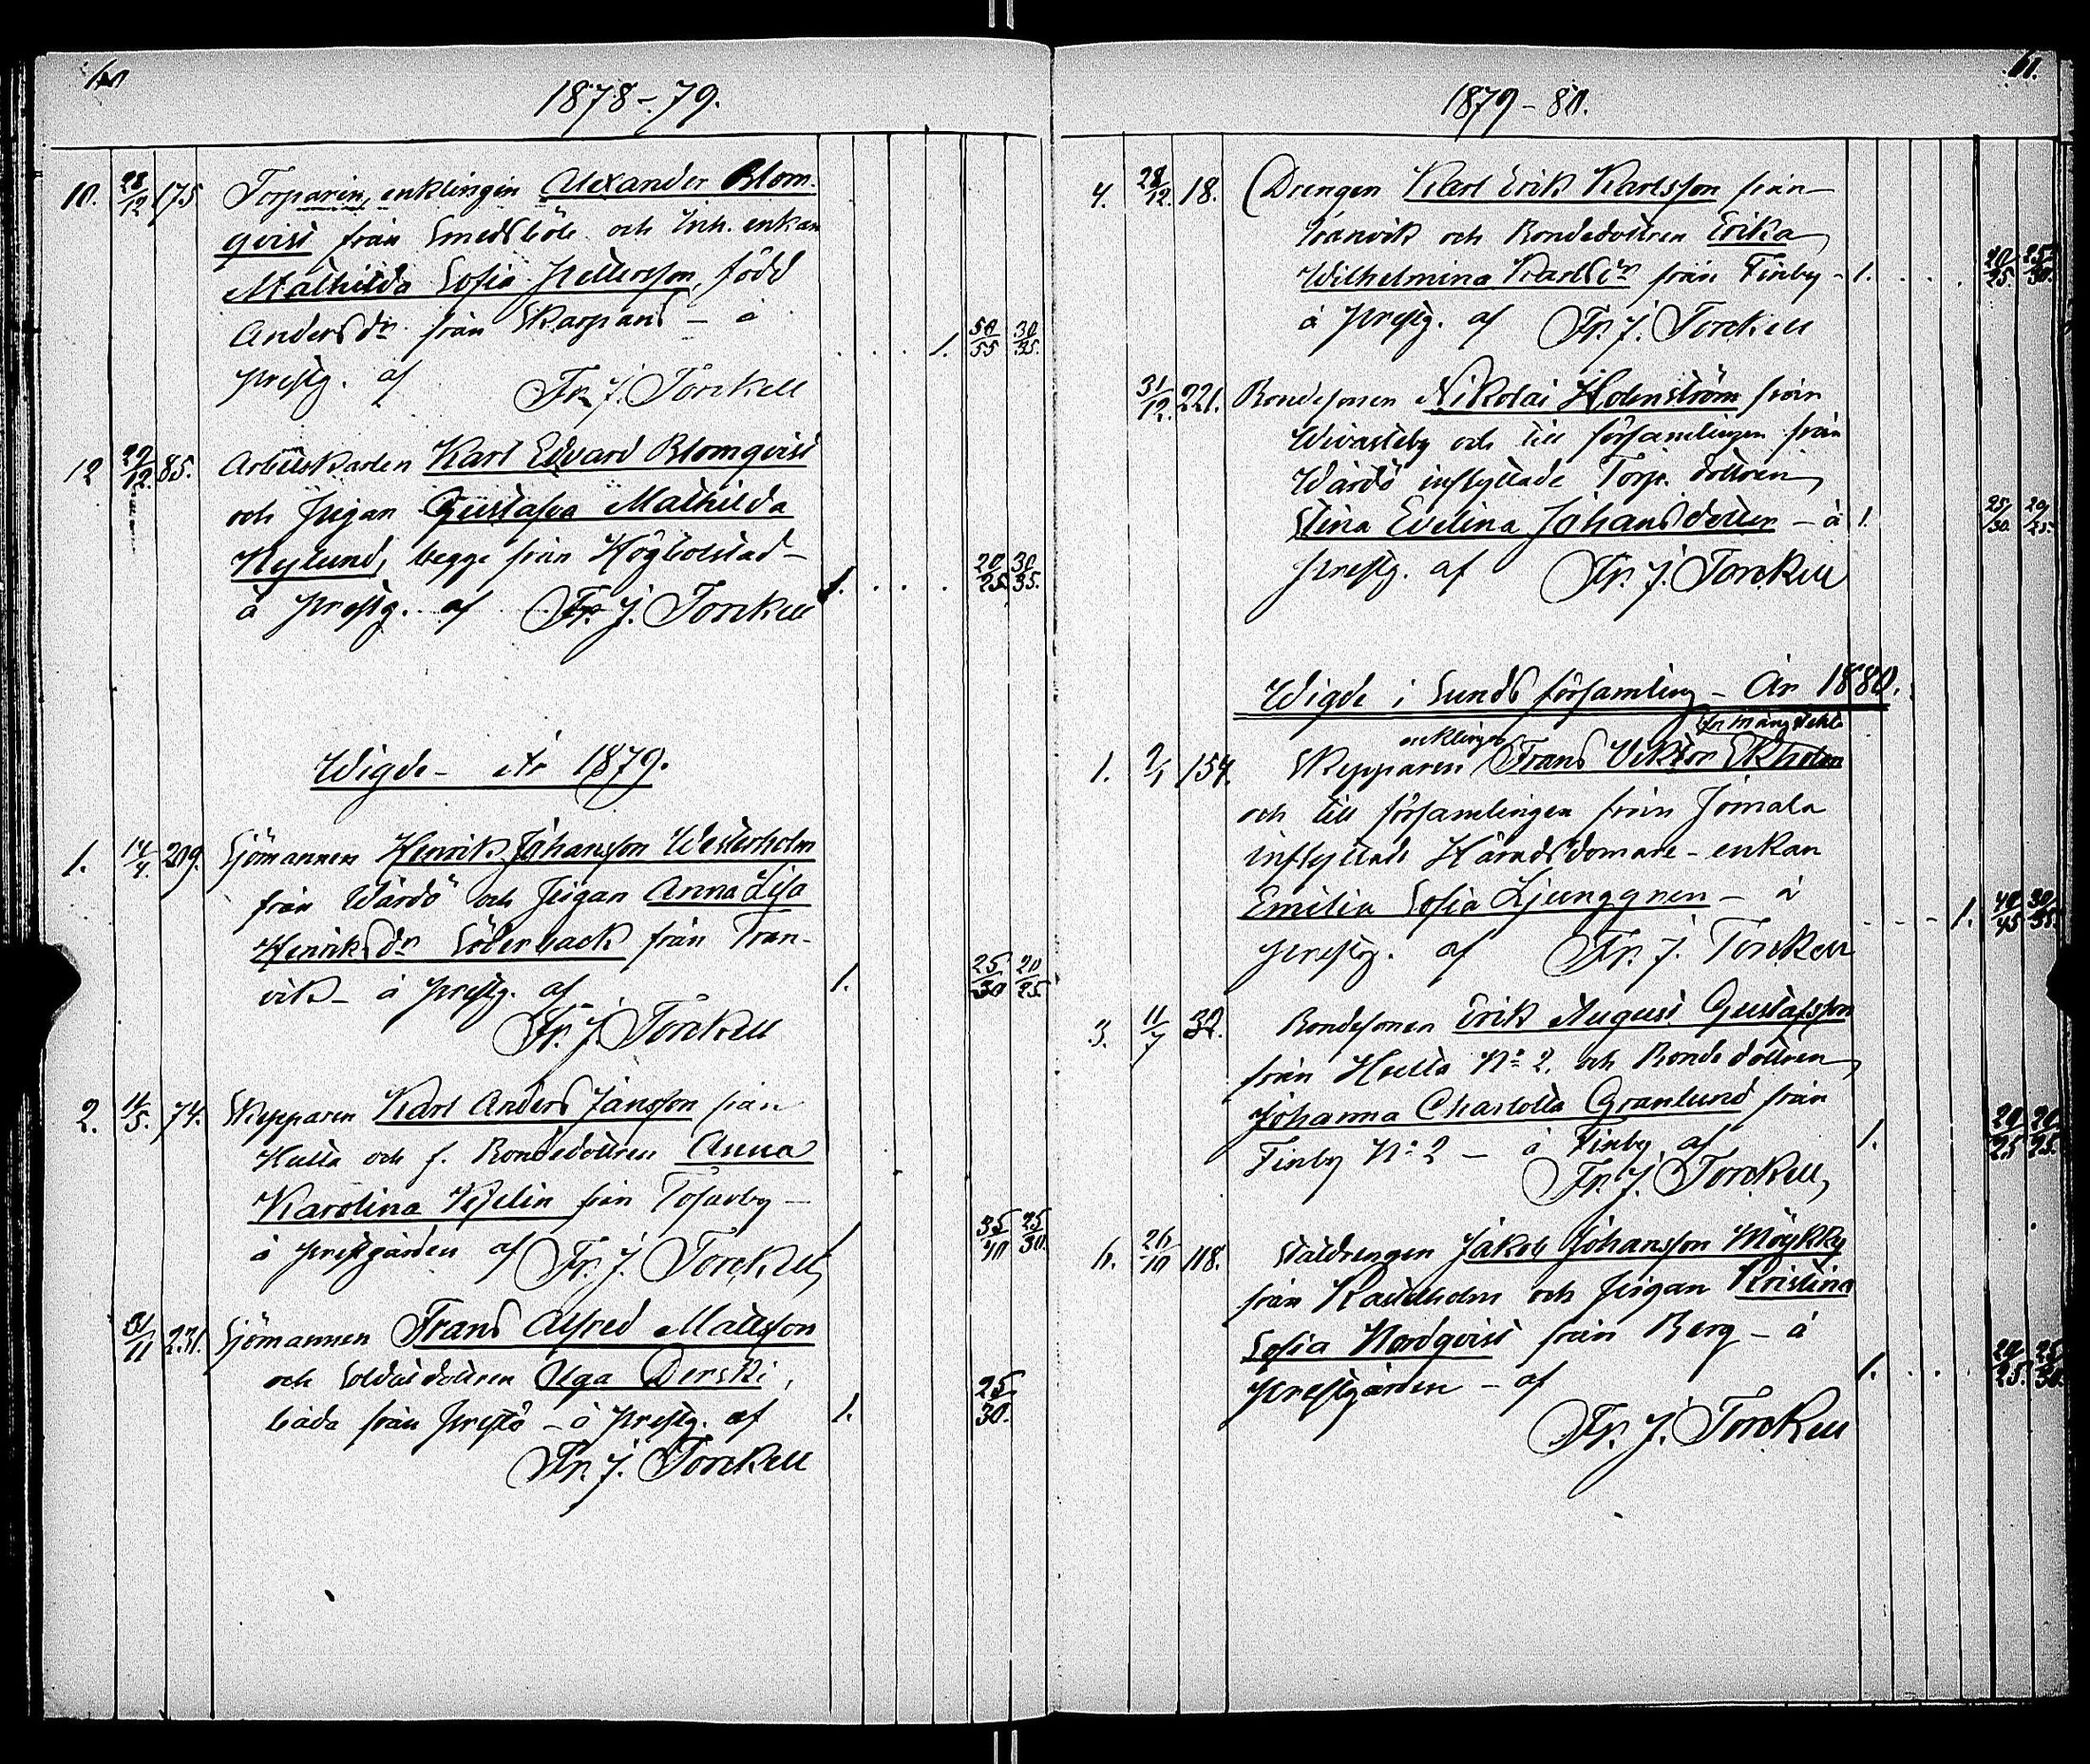 1878-79.
10. 28/12 175 Torparen, enklingen Alexander Blom-
qvist från Smedsböle och Inh. enkan
Mathilda Sofia Pettersson, född
Andersdr från Skarpans - å
1. 50/55 30/35.
prestg. af Fr. J. Torckell
12 29/12. 85. Arbetskarlen Karl Edvard Blomqvist
och Pigan Gustafva Mathilda
Nylund, begge från Högbolstad -
1. 20/25 30/35.
å prestg. af Fr. J. Torckell
Wigde - År 1879.
1. 14/4. 209. Sjömannen Henrik Johansson Westerholm
från Wårdö och Pigan Anna Lisa
Henriksdr Söderback från Tran-
vik - å prestg. af 1. 25/30 20/25
Fr. J. Torckell
2. 11/5. 74. Skepparen Karl Anders Jansson från
Hulta och f. Bondedottren Anna
Karolina från Tosarby -
å prestgården af Fr. J. Torckell 1. 35/40 25/30.
31/11 231. Sjömannen Frans Alfred Mattsson
och Soldatdottren Olga Derski,
båda från Prestö - å prestg. af 1. 25/30.
Fr. J. Torckell
61.
1879-80.
4. 28/12. 18. Drengen Karl Erik Karlsson från
Tranvik och Bondedottren Erika
Wilhelmina Karlsdr från Finby - 1. 20/25. 25/30.
å prestg. af Fr. J. Torckell
31/12. 221. Bondesonen Nikolai Holmström från
Wivastby och till församlingen från
Wårdö inflyttade Torp. dottren
Stina Evelina Johansdotter - å 1. 25/30. 20/25.
prestg. af Fr. J. Torckell
Wigde i Sunds församling - År 1880.
enklingen
1. 2/1 154. Skepparen Frans Viktor Ekholm
och till församlingen från Jomala
inflyttade Häradsdomare-enkan
Emilia Sofia Ljunggren - å
1. 40/45 30/35.
prestg. af Fr. J. Torckell
3. 11/7 32. Bondesonen Erik August Gustafsson
från Hulta No 2. och Bondedottren
Johanna Charlotta Granlund från
Finby No 2 - å Finby af 1. 20/25 20/25.
Fr. J. Torckell,
6. 26/10 118. Staldrengen Jakob Johansson Möykky
från Kastelholm och Pigan Kristina
Sofia Nordqvist från Berg - å
prestgården - af 1. 20/25. 25/30.
Fr. J. Torckell